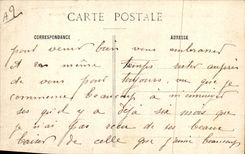 A2
CARTE POSTALE
CORRESPONDANCE ADRESSE
pour venir bien vous embrasser
et en même temps rester auprès
de vous pour toujours, vu que je
commence beaucoup à m'ennuyer
des qu'il y a déjà six mois que
je n'ai pas reçu de ses beaux
baiser De celle que j'aime beaucoup